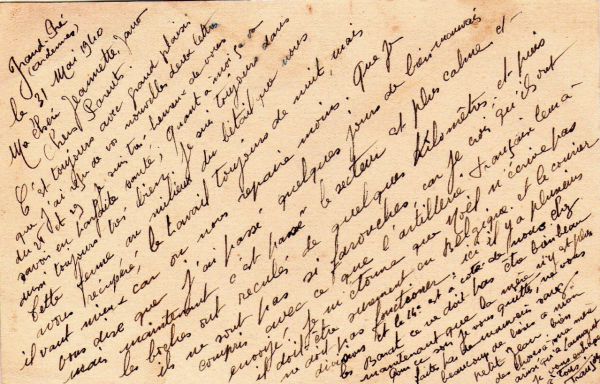 Grand-Pré
(Ardennes)
le 31 Mai 1940
Ma chère Jeannette, Jano
Chers Parents.
C'est toujours avec grand plaisir
que j'ai reçu de vos nouvelles deux lettres
du 21 et 23 et suis très heureux de vous
savoir en parfaite santé, quant à moi ça va
aussi toujours très bien. Je suis toujours dans
cette ferme au milieu du bétail que nous
avons récupéré, le travail toujours de nuit, mais
il vaut mieux car on nous repaire moins. Que je
vous dise que j'ai passé quelques jours de bien mauvais
mais maintenant c'est passé le secteur et plus calme et
les boches ont reculés de quelques kilomètres, et puis
ils ne sont pas si farouches, car je crois qu'ils ont
compris avec ce que l'artillerie Française leur a
envoyé, je m'étonne que Noël n'écrive pas
il doit être suspect en Belgique et le courrier
ne doit pas fonctionner; ici il y a plusieurs
divisions et le 14e est à côté de nous chez
les ce ne doit pas être bien beau
maintenant que la mère n'y est plus
je vous quitte, ne vous
faites pas de mauvais sang
beaucoup de baise à mon
petit Jean bien